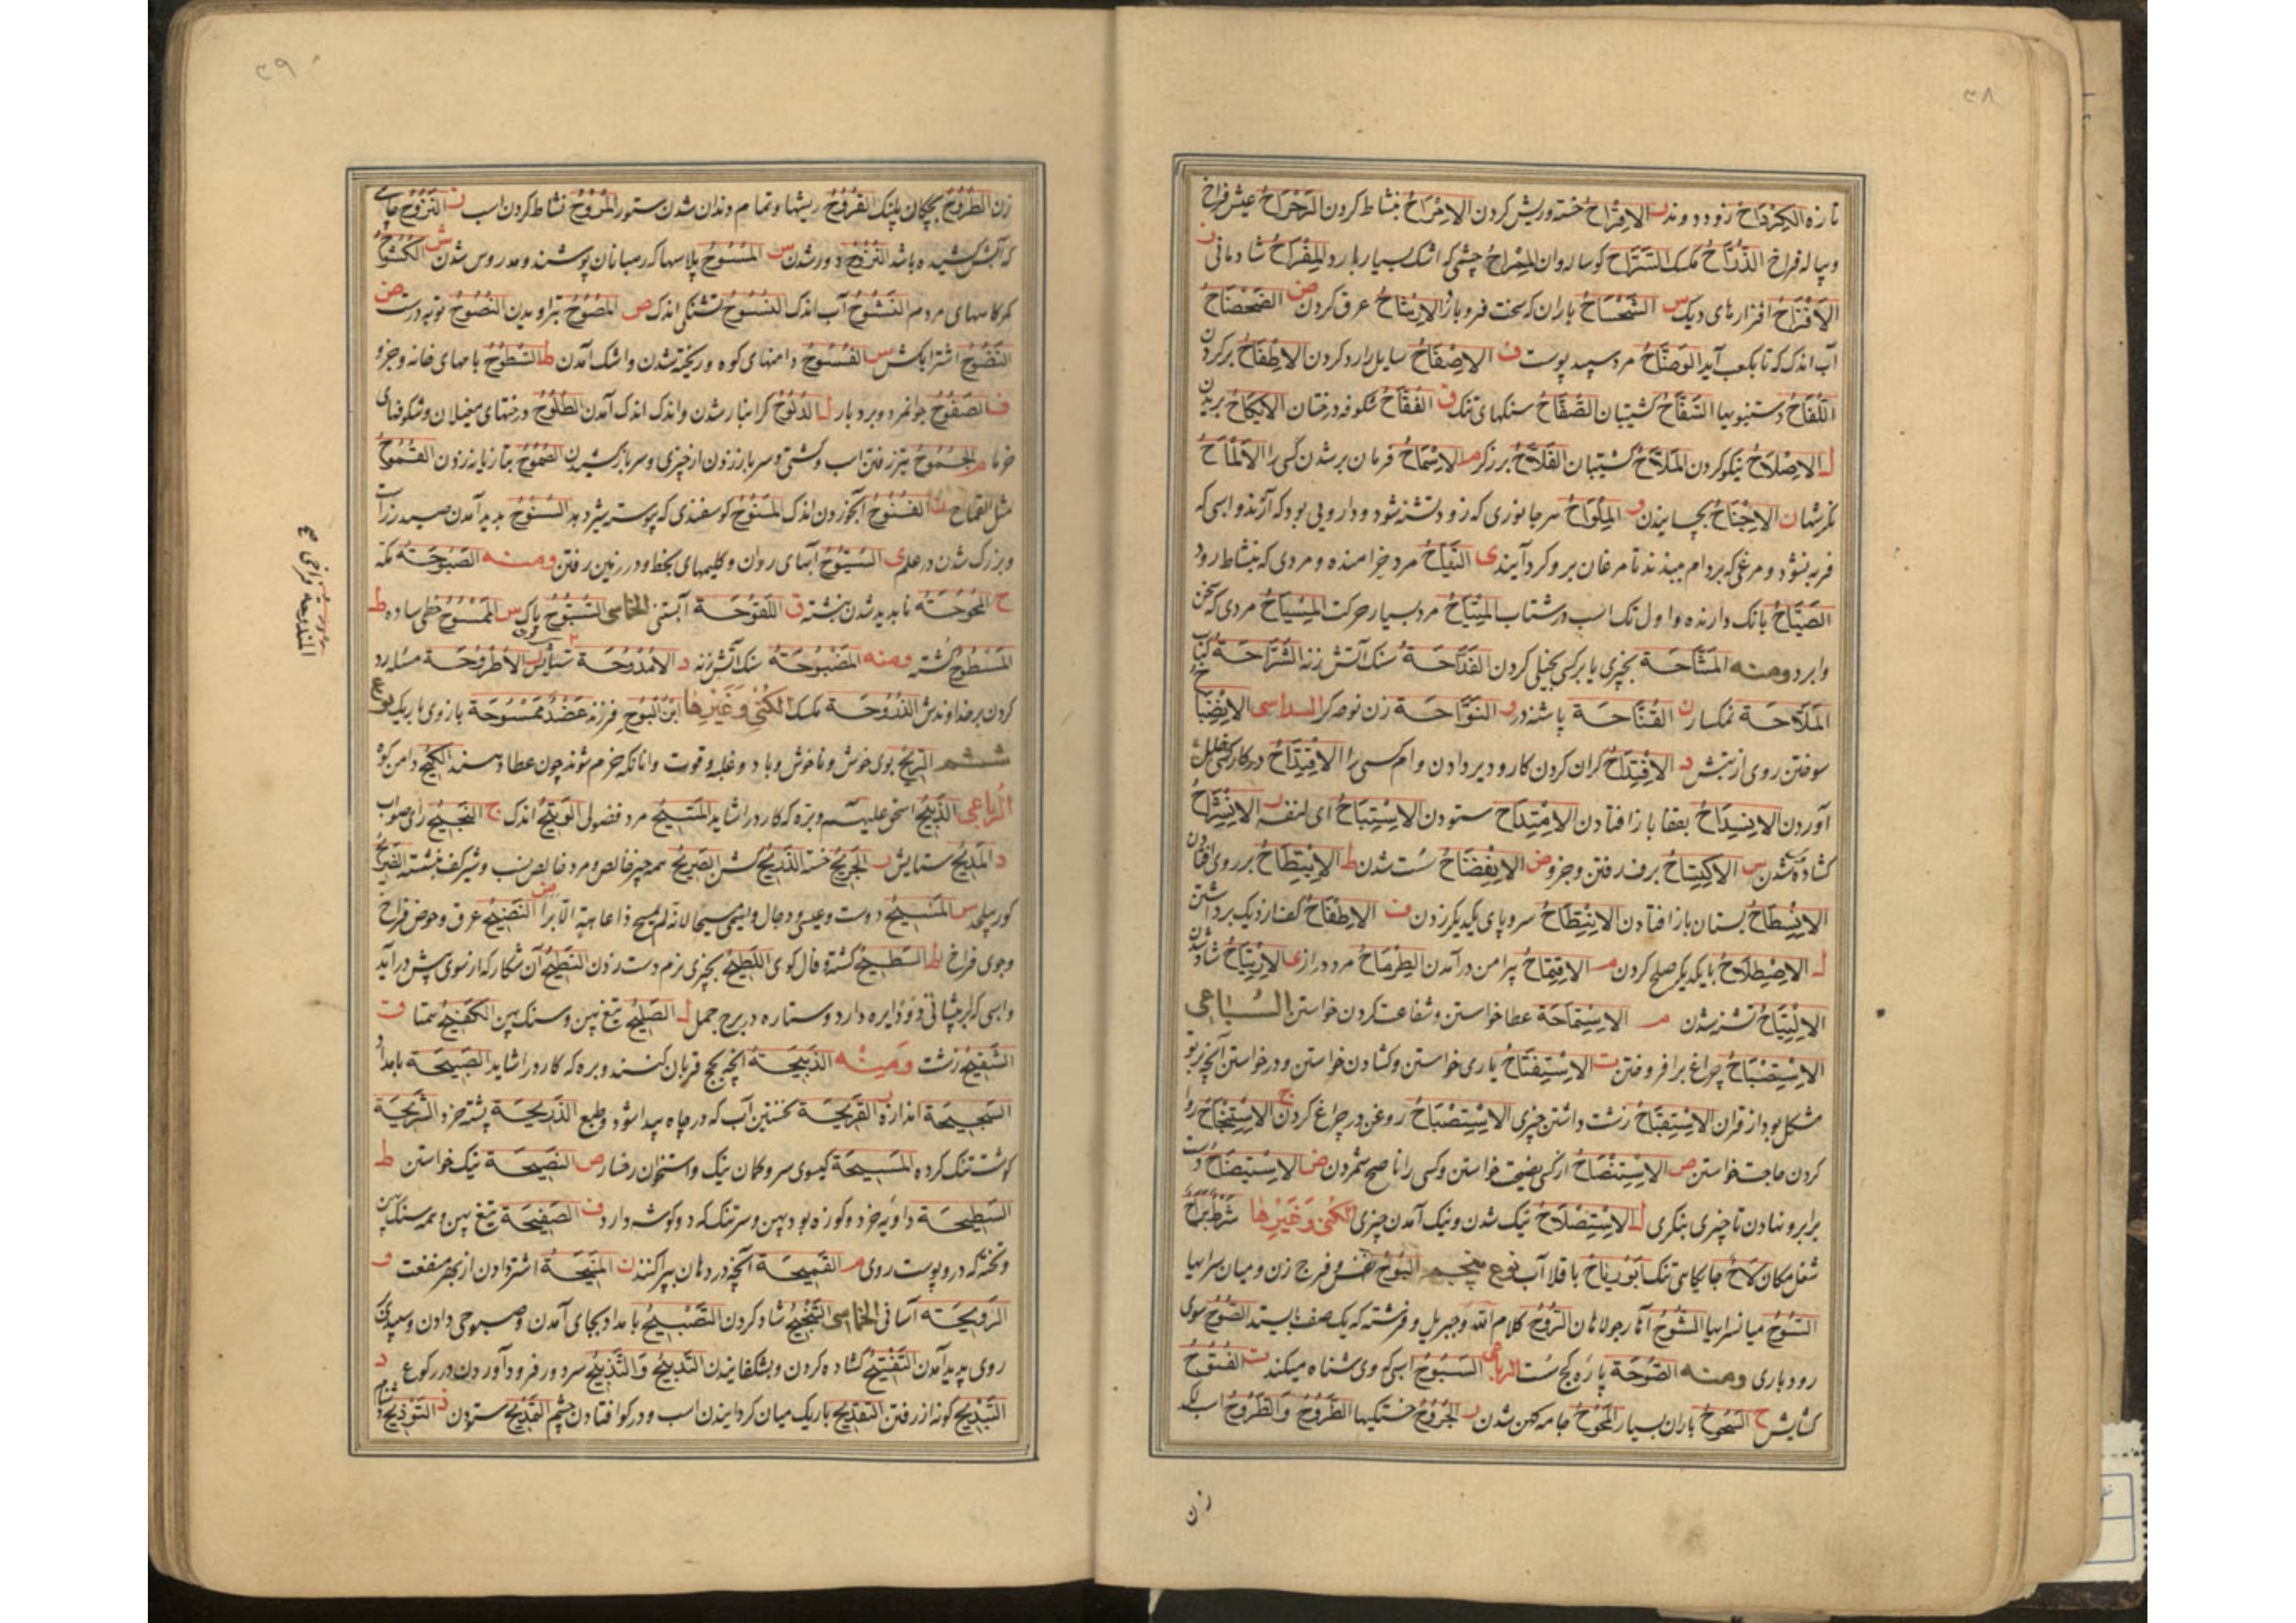 ۳۸
تازه الکِرْدَاحُ زود دویدن ر الاِقْرَاحُ خسته و ریش کردن الاِمْرَاحُ بنشاط کردن الرَّحْرَاحُ عیش فراخ
و پیاله فراخ الذُّرَّاحُ مکسک السَّرَّاحِ کوساله وان المِمْرَاحُ چشمی که اشک بسیار بارد المِفْرَاحُ شادمانی
الاَقْزَاحُ افزارهای دیک س الشَّحْشَاحُ باران که سخت فرو بارد الاِرْشَاحُ عرق کردن ض الضَّحْضَاحُ
آب اندک که تا بکعب آید الوَضَّاحُ مرد سپید پوست ف الاِصْفَاحُ سایل را رد کردن الاِطْفَاحُ پر کردن
اللُّفَّاحُ دستنبویها السَّفَّاحُ کشتیبان الصُّفَّاحُ سنکهای تنک ق الفُقَّاحُ شکوفه درختان
ل الاِصْلَاحُ نیکو کردن المَلَّاحُ کشتیبان الفَلَّاحُ برزکر م الاِسْمَاحُ فرمان بر شدن کسی را الاَلْمَاحُ
نکرشها ن الاِجْنَاحُ بچسپانیدن و المِلْوَاحُ هر جانوری که زود تشنه شود و دارویی بود که آرند و اسبی که
فربه نشود و مرغی که بر دام بندند تا مرغان برو کرد آیند ی التَّیَّاحُ مرد خرامنده و مردی که بنشاط رود
الصَّیَّاحُ بانک دارنده و اول تک اسب و شتاب المِتْیَاحُ مرد بسیار حرکت المِسْیَاحُ مردی که سخن
وا برد ومنه المَشَّاحَة بچیزی یا بر کسی بخیلی کردن القَدَّاحَةُ سنک آتش زنه
المَلَّاحَة نمکسار ن القُنَّاحَة پاشنه در و النَّوَّاحَة زن نوحه کر السداسی
سوختن روی از تبش د الاِفْتِدَاحُ کران کردن کار و دیر دادن وام کسی را الاِقْتِدَاحُ در کار کسی خلل
آوردن الاِنْسِدَاحُ بقفا باز افتادن الاِمْتِدَاحُ ستودن الاِسْتِبَاحُ ر الاِنْشِرَاحُ
کشاده شدن س الاِکْتِسَاحُ برف رفتن و جزو ض الاِنْفِضَاحُ سست شدن ط الاِنْبِطَاحُ بر روی افتادن
الاِنْسِطَاحُ بستان باز افتادن الاِنْتِطَاحُ سر و پای یکدیکر زدن ف الاِطِّفَاحُ کف از دیک برداشتن
ل الاِصْطِلَاحُ با یکدیکر صلح کردن م الاِقْتِمَاحُ پیرامن در آمدن الطِّرْمَاحُ مرد دراز ی الاِرْتِیَاحُ شاد شدن
الاِلْتِیَاحُ تشنه شدن م الاِسْتِمَاحَة عطا خواستن و شفاعت کردن خواستن السباعی
الاِسْتِصْبَاحُ چراغ برافروختن ت الاِسْتِفْتَاحُ یاری خواستن و کشادن خواستن و در خواستن آنچه برتو
مشکل بود از قران الاِسْتِقْبَاحُ زشت داشتن چیزی الاِسْتِصْبَاحُ روغن در چراغ کردن ج الاِسْتِنْجَاحُ روا
کردن حاجت خواستن ص الاِسْتِنْصَاحُ از کسی نصیحت خواستن و کسی را ناصح شمردن ض الاِسْتِیضَاحُ دست
بر ابرو نهادن تا چیزی بنکری ل الاِسْتِصْلَاحُ نیک شدن و نیک آمدن چیزی الکُنٰی وَغَیْرِهَا
شغل مکان جایکاهی تنک باقلا آب نوع پنجم البُوحُ نفس و فرج زن و میان سرایها
السُّوحُ میان سرایها الشُّوحُ الرُّوحُ کلام الله و جبریل و فرشته که یک صف بایستد الصُّوحُ سوی
رودباری ومنه الصُّوحَة پاره کج ست الرباعی السَّبُوحُ اسبی که وی شناه میکند ت الفُتُوحُ
کشایش ح السَّحُوحُ باران بسیار المُحُوحُ جامه کهن شدن ر الجُرُوحُ خستکیها الطَّرُوحُ والطَّرُوحُ
زن
۳۹
زن الطُّرُوحُ بچکان پلنک القُرُوحُ ریشها و تمام دندان شدن ستور المُرُوحُ نشاط کردن اسب ز النَّزُوحُ چاهی
که آبش کشیده باشد النُّزُوحُ دور شدن س المُسُوحُ پلاسها که رهبانان پوشند و مدروس شدن ش الکُشُوحُ
کمرکاههای مردم النَّشُوحُ آب اندک النُّشُوحُ تشنکی اندک ص المُصُوحُ تراویدن النَّصُوحُ توبه درست ض
النَّضُوحُ اشتر آبکش س الفُسُوحُ دامنهای کوه و ریخته شدن و اشک آمدن ط السُّطُوحُ بامهای خانه و جزو
ف الصَّفُوحُ جوانمرد و بردبار ل الدُّلُوحُ کرانبار شدن و اندک اندک آمدن الطُّلُوحُ درختهای مغیلان و شکوفهای
خرما م الجُمُوحُ تیز رفتن اسب و کشتی و سر باز زدن از چیزی و سر باز کشیدن بتازیانه زدن القُمُوحُ
مثل القماح ن القُنُوحُ آبخوردن اندک المَنُوحُ کوسفندی که پیوسته شیر دهد السُّنُوحُ پدید آمدن صید
و بزرک شدن در علم ی السُّیُوحُ آبهای روان و کلیمهای بخط و در زمین رفتن ومنه الصَّبُوحَةُ
ح المُحُوحَةُ ناپدید شدن نبشته ق اللَّقُوحَة آبستنی الخماسی السُّبُّوحُ پاک س المَمْسُوحُ خطی ساده ط
المَسْطُوحُ کشته ومنه المَضْبُوحَةُ سنک آتش زنه د الاُمْدُوحَة ستایش ر الاُطْرُوحَة مسئله رد
کردن بر خداوندش الذُّرُّوحَة مکسک الکُنٰی وَغَیْرِهَا ابنُ البُوحِ فرزند عَضُدٌ مَمْسُوحَة بازوی باریک نوع
ششم الرِّیحُ بوی خوش و ناخوش و باد و غلبه و قوت و آنانکه خرم شوند چون عطا دهند الکِیحُ دامن کوه
الرباعی الذَّبِیحُ اسحق علیه و بره که کارد را شاید المَتِیحُ مرد فضولی الوَتِیحُ اندک ج النَّجِیحُ رای صواب
د المَدِیحُ ستایش ر الجَرِیحُ خسته الصَّرِیحُ همه چیز خالص و مرد خالص نسب و شیر کف نشسته الضَّرِیحُ
کور س المَسِیحُ دوست و عیسی و دجال ض النَّضِیحُ عرق و حوض فراخ
و جوی فراخ ط السَّطِیحُ کشته و فال کوی اللَّطِیحُ بچیزی نرم دست زدن النَّطِیحُ آن شکار که از سوی پیش در آید
و اسبی که بر پیشانی دو دایره دارد و ستاره در برج حمل ل تیغ پهن و سنک پهن الکَفِیحُ همتا ق
الشَّقِیحُ زشت وَمِنْه الذَّبِیحَةُ آنچه بحج قربان کنند و بره که کارد را شاید الصَّبِیحَة بامداد
السَّجِیحَة اندازه ر القَرِیحَة نخستین آب که در چاه پیدا شود و طبع الذَّرِیحَة پشته خرد الشَّرِیحَة
کوشت تنک کرده المَسِیحَة کیسوی سر و کمان نیک و استخوان رخسار ص النَّصِیحَة نیک خواستن ط
السَّطِیحَة داویه خرد و کوزه بود پهن و سر تنک که دو کوشه دارد ف الصَّفِیحَة تیغ پهن و همه سنک پهن
و تخته که در و پوست روی م القَمِیحَة آنچه در دهان پراکنند ن المَنِیحَةُ اشتر دادن از بهر منفعت و
الرَّوِیحَة آسانی الخماسی التَّبْجِیحُ شاد کردن التَّصْبِیحُ بامداد بجای آمدن و صبوحی دادن و سپیدی
روی پدید آمدن التَّفْتِیحُ کشاده کردن و بشکفانیدن التَّدْبِیحُ وَالتَّذْبِیحُ سر در فرود آوردن در رکوع د
التَّبْدِیحُ کوتاه رفتن التَّقْدِیحُ باریک میان کردانیدن اسب و در کو افتادن چشم المَدِیحُ ستودن
المندوحة فراخی صح